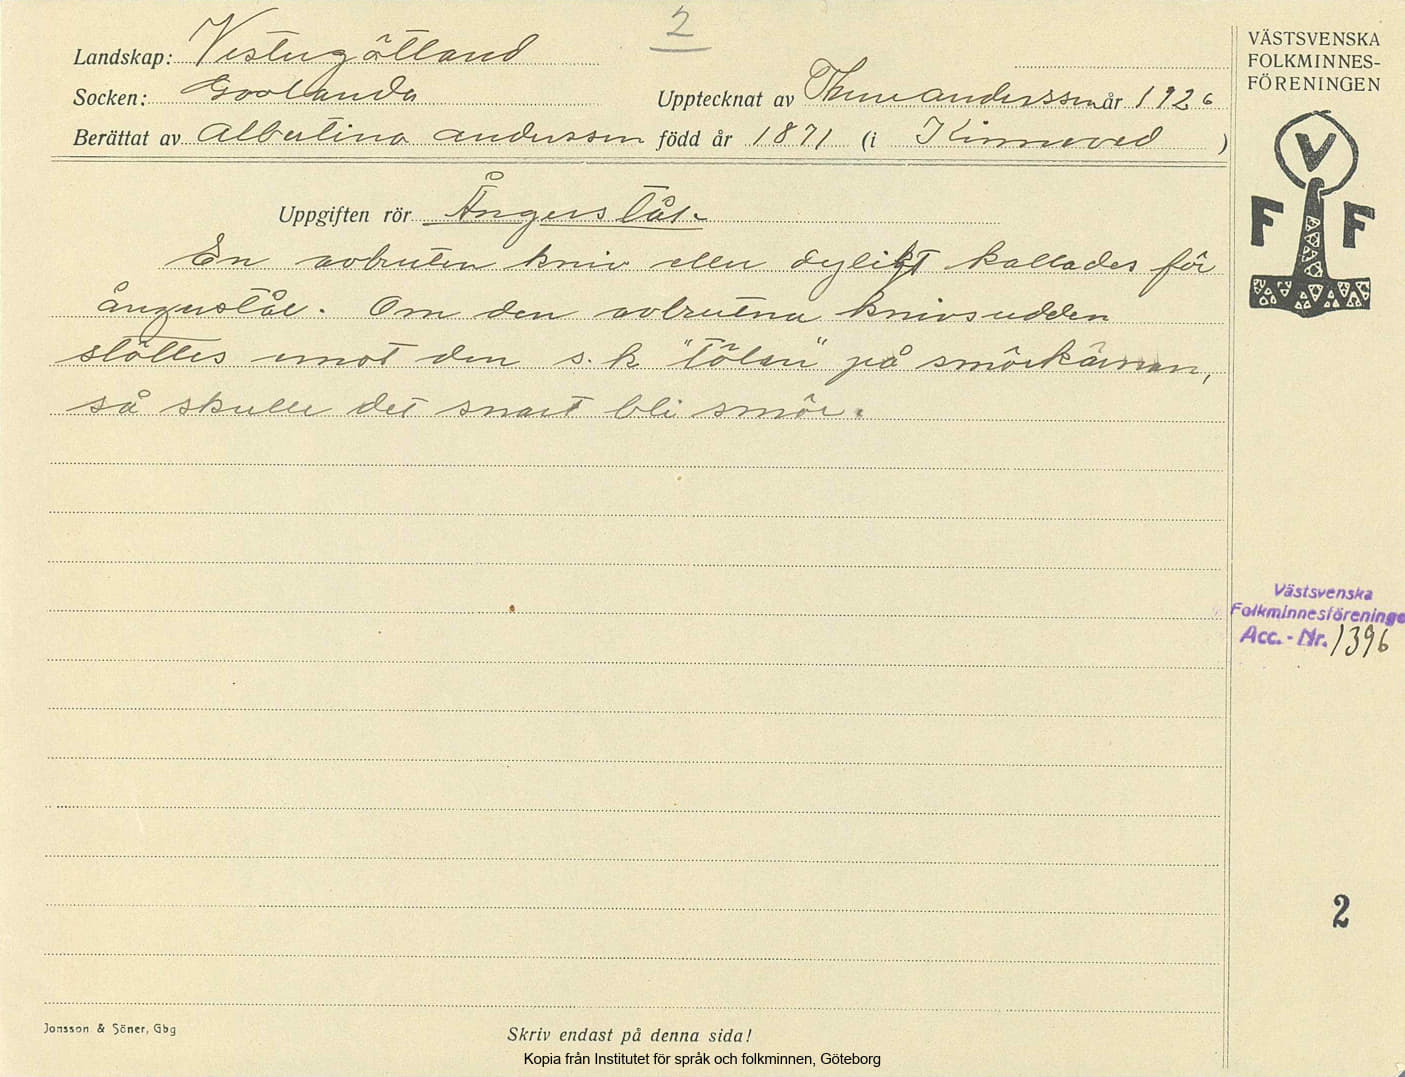 2
Landskap: Vestergötland
Socken: Goolanda
Upptecknat av Thure Andersson år 1926
Berättat av Albertina Andersson född år 1871 (i Kinneved )
Uppgiften rör Ångerstål.
En avbruten kniv eller dylikt kallades för
ångerstål. Om den avbrutna knivsudden
stöttes emot den s.k "tölen" på smörkärnan,
så skulle det snart bli smör.
VÄSTSVENSKA
FOLKMINNES-
FÖRENINGEN
V
F F
Västsvenska
Folkminnesföreninge
Acc. - Nr. 1396
2
Jonsson & Söner, Gbg
Skriv endast på denna sida!
Kopia från Institutet för språk och folkminnen, Göteborg